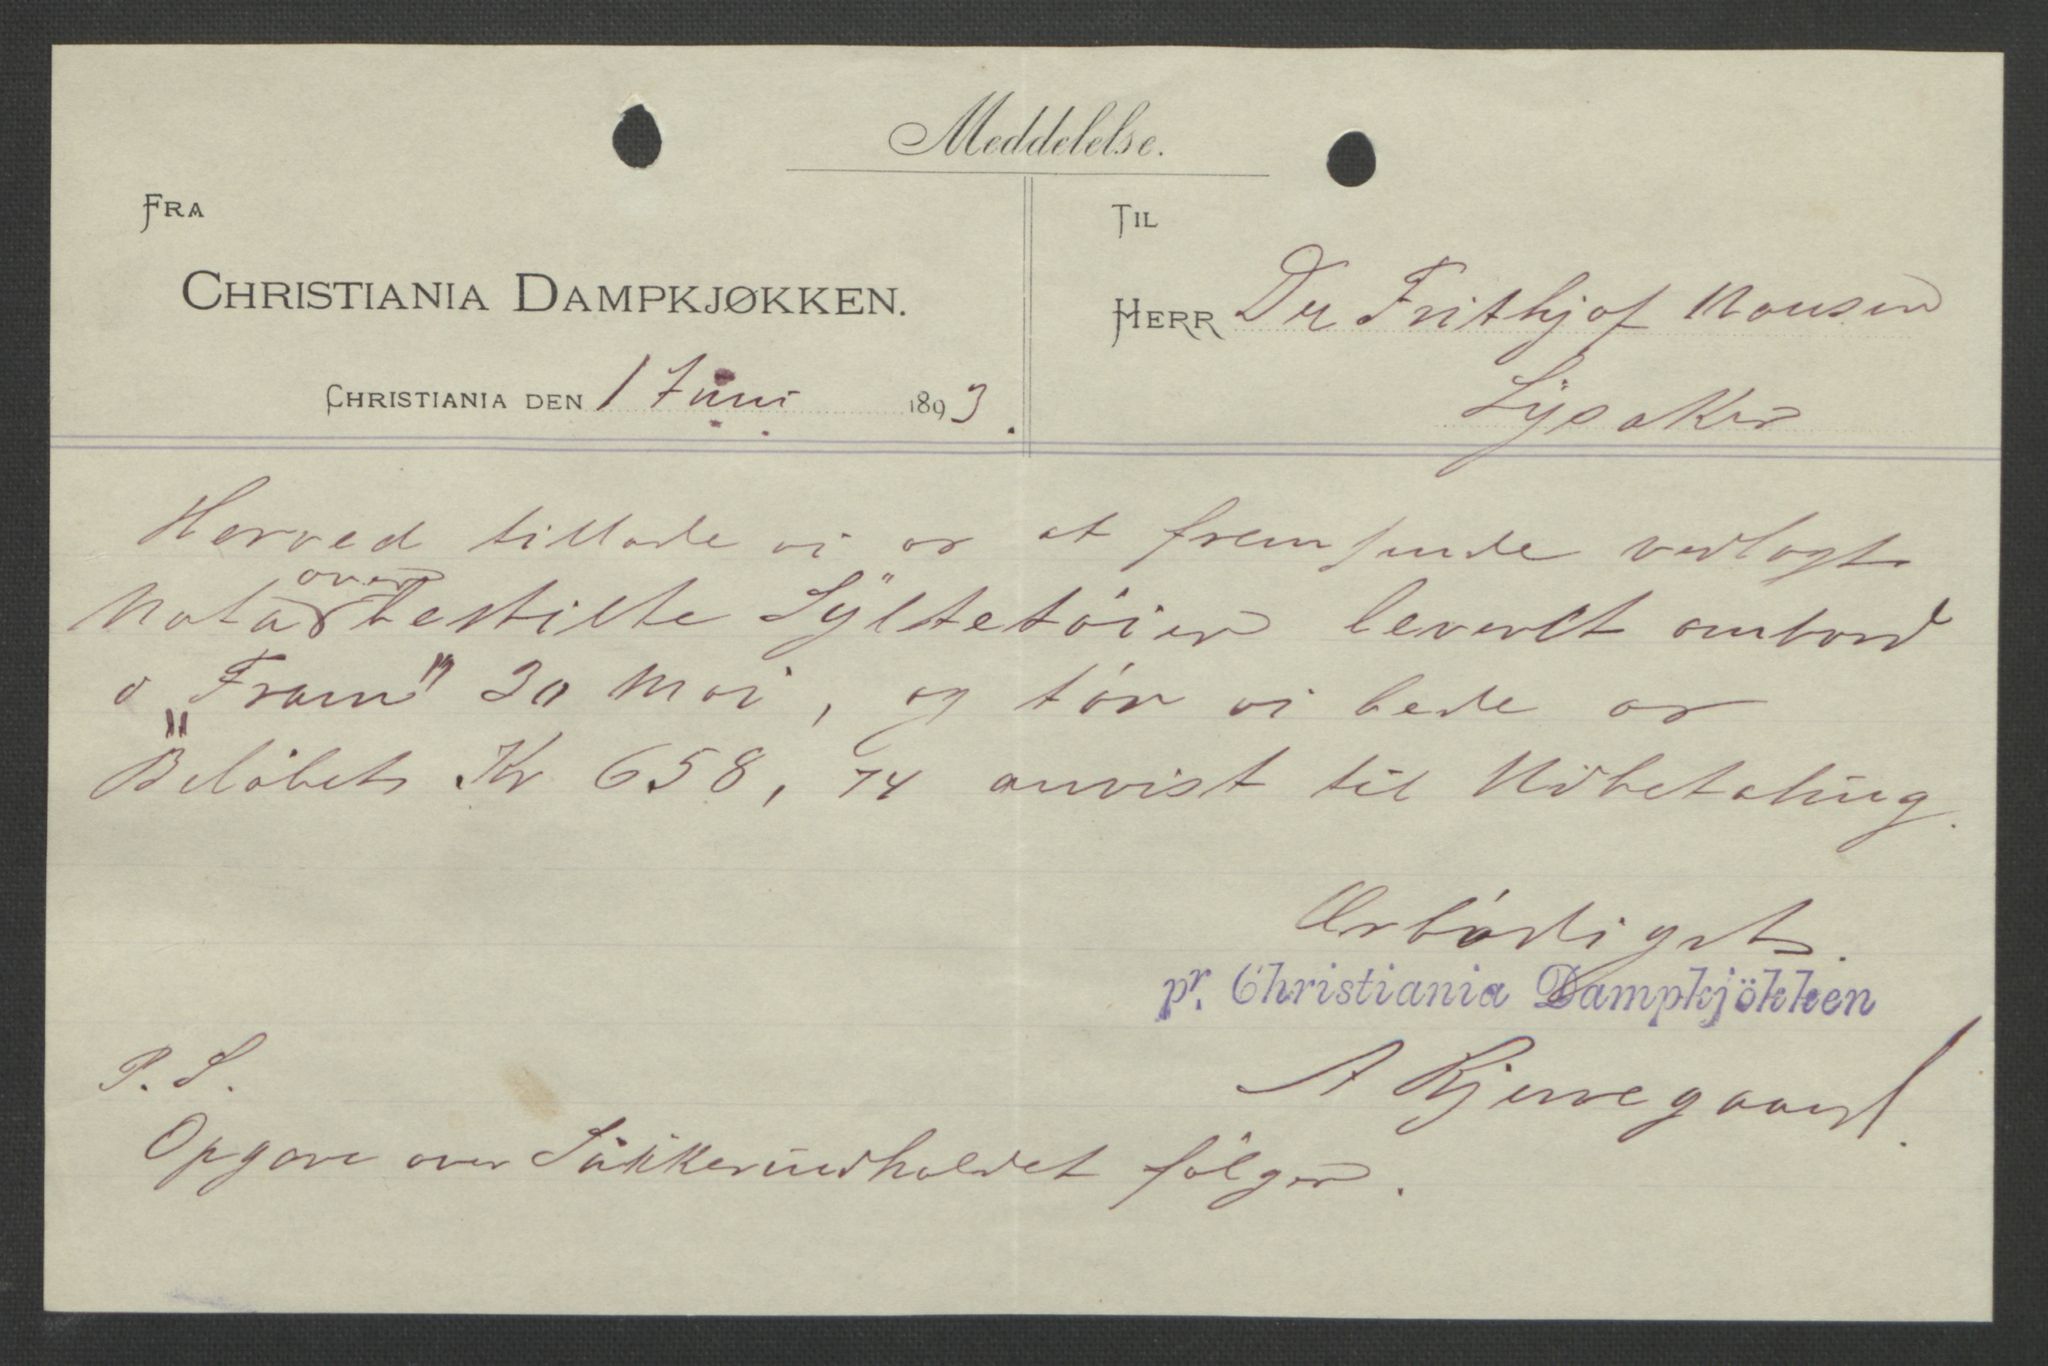 Meddelelse.
FRA
CHRISTIANIA DAMPKJØKKEN.
CHRISTIANIA DEN 1 Juni 1893.
TIL
HERR Dr Frithjof Nansen
Lysaker
Herved tillade vi os at fremsende vedlagt
Nota over bestilte Syltetöier leveret ombord
i „Fram" 30 Mai, og tör vi bede os
Belöbet Kr 658,74 anvist til Udbetaling.
Ærbödigst.
pr. Christiania Dampkjökken
A Bjerregaard.
P. S.
Opgave over Sukkerindholdet fölger.